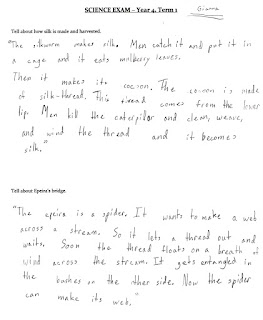 SCIENCE EXAM – Year 4, Term 1
Gianna
Tell about how silk is made and harvested.
"The silkworm makes silk. Men catch it and put it in
a cage and it eats mulberry leaves.
Then it makes its cocoon. The cocoon is made
of silk-thread. This thread comes from the lower
lip. Men kill the caterpilor and clean, weave,
and wind the thread and it becomes
silk."
Tell about Epeira's bridge.
"The epeira is a spider. It wants to make a web
across a stream. So it lets a thread out and
waits. Soon the thread floats on a breath of
wind across the stream. It gets entangled in
the bushes on the other side. Now the spider
can make its web."